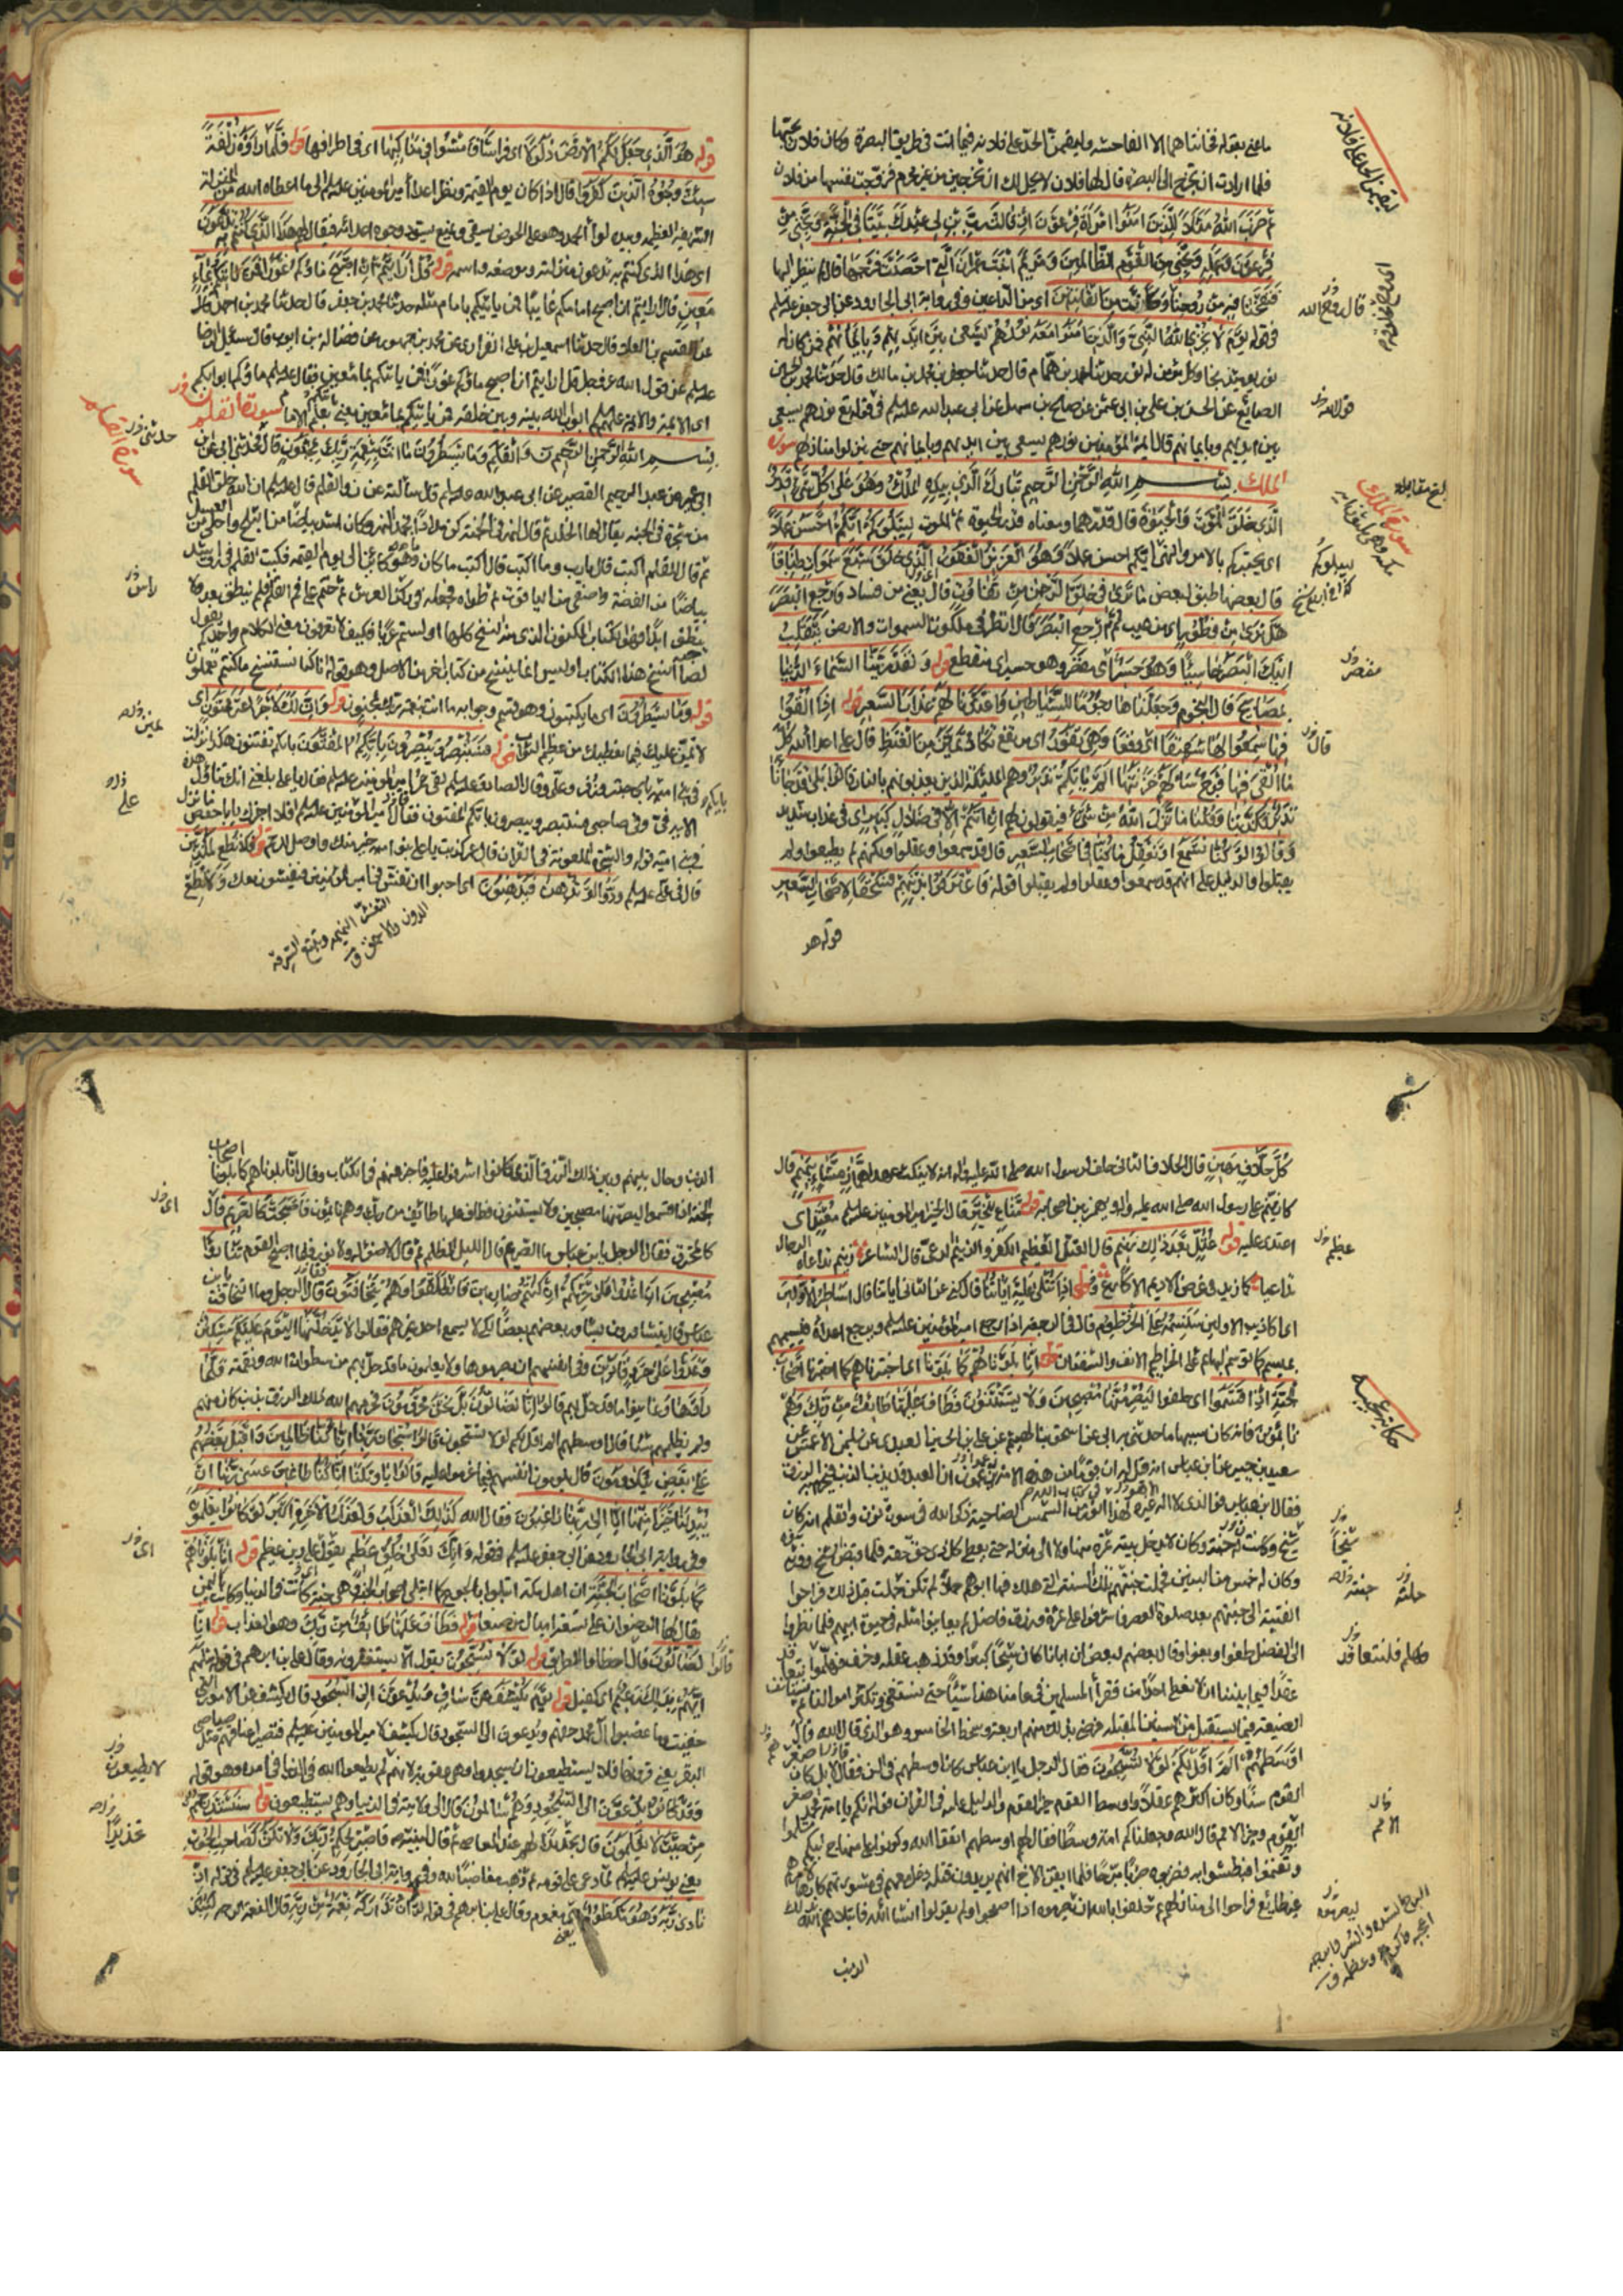 ما عنى بقوله فخانتاهما الا الفاحشة وليقيمن الحد على فلانة فيما اتت في طريق البصرة وكان فلان يحبها
فلما ارادت ان تخرج الى البصرة قال لها فلان لا يحل لك ان تخرجين من غير محرم فزوجت نفسها من فلان
ثم ضرب الله مثلا للذين امنوا امرأة فرعون اذ قالت رب ابن لي عندك بيتا في الجنة ونجني من
فرعون وعمله ونجني من القوم الظالمين ومريم ابنت عمران التي احصنت فرجها قال لم ينظر اليها
فنفخنا فيه من روحنا وكانت من القانتين اي من الداعين وفي رواية ابي الجارود عن ابي جعفر عليه السلم
في قوله يوم لا يخزي الله النبي والذين امنوا معه نورهم يسعى بين ايديهم وبايمانهم فمن كان له
نور يومئذ نجا وكل مؤمن له نور حدثنا محمد بن همام قال حدثنا جعفر بن محمد بن مالك قال حدثنا محمد بن الحسين
الصائغ عن الحسن بن علي بن ابي عثمن عن صالح بن سهل عن ابي عبد الله عليه السلم في قوله نورهم يسعى
بين ايديهم وبايمانهم قال ائمة المؤمنين نورهم يسعى بين ايديهم وبايمانهم حتى ينزلوا منازلهم سورة
الملك بسم الله الرحمن الرحيم تبارك الذي بيده الملك وهو على كل شيء قدير
الذي خلق الموت والحيوة قال قدرهما ومعناه قدر الحيوة ثم الموت ليبلوكم ايكم احسن عملا
اي يختبركم بالامر والنهي ايكم احسن عملا وهو العزيز الغفور الذي خلق سبع سموات طباقا
قال بعضها طبق لبعض ما ترى في خلق الرحمن من تفاوت قال يعني من فساد فارجع البصر
هل ترى من فطور اي من عيب ثم ارجع البصر قال انظر في ملكوت السموات والارض ينقلب
اليك البصر خاسئا وهو حسير اي يقصر وهو حسير اي منقطع قوله ولقد زينا السماء الدنيا
بمصابيح قال النجوم وجعلناها رجوما للشياطين واعتدنا لهم عذاب السعير قوله اذا القوا
فيها سمعوا لها شهيقا اي وقعا وهي تفور اي ترتفع تكاد تميز من الغيظ قال على اعداء الله كل
ما القي فيها فوج سألهم خزنتها الم يأتكم نذير وهم الملئكة الذين يعذبونهم بالنار قالوا بلى قد جاءنا
نذير فكذبنا وقلنا ما نزل الله من شيء فيقولون لهم ان انتم الا في ضلال كبير اي في عذاب شديد
وقالوا لو كنا نسمع او نعقل ما كنا في اصحاب السعير قال قد سمعوا وعقلوا ولكنهم لم يطيعوا ولم
يقبلوا والدليل على انهم قد سمعوا وعقلوا ولم يقبلوا قوله فاعترفوا بذنبهم فسحقا لاصحاب السعير
قوله هو
ليقيمن الحد على فلانة
قال روح الله
قول الله
بلغ مقابلة
سورة الملك
ليبلوكم
قال
قوله هو الذي جعل لكم الارض ذلولا اي فراشا فامشوا في مناكبها اي في اطرافها قوله فلما رأوه زلفة
سيئت وجوه الذين كفروا قال اذا كان يوم القيمة ونظر اعداء امير المؤمنين عليه السلم الى ما اعطاه الله من المنزلة
الشريفة العظيمة وبيده لواء الحمد وهو على الحوض يسقي ويمنع تسود وجوه اعدائه فيقال لهم هذا الذي كنتم به تدعون
اي هذا الذي كنتم به تدعون منزلته وموضعه واسمه قوله قل ارأيتم ان اصبح ماؤكم غورا فمن يأتيكم بماء
معين قال ارأيتم ان اصبح امامكم غائبا فمن يأتيكم بامام مثله حدثنا محمد بن جعفر قال حدثنا محمد بن احمد
عن القسم بن العلا قال حدثنا اسمعيل بن علي الفزاري عن محمد بن جمهور عن فضالة بن ايوب قال سئل الرضا
عليه السلم عن قول الله عز وجل قل ارأيتم ان اصبح ماؤكم غورا فمن يأتيكم بماء معين فقال عليه السلم ماؤكم ابوابكم
اي الائمة والائمة عليهم السلم ابواب الله بينه وبين خلقه فمن يأتيكم بماء معين يعني يأتيكم بعلم الامام سورة القلم
بسم الله الرحمن الرحيم ن والقلم وما يسطرون ما انت بنعمة ربك بمجنون قال فحدثني ابي عن
ابن ابي عمير عن عبد الرحيم القصير عن ابي عبد الله عليه السلم قال سألته عن ن والقلم قال عليه السلم ان الله خلق القلم
من شجرة في الجنة يقال لها الخلد ثم قال لنهر في الجنة كن مدادا فجمد النهر وكان اشد بياضا من الثلج واحلى من العسل
ثم قال للقلم اكتب قال يارب وما اكتب قال اكتب ما كان وما هو كائن الى يوم القيمة فكتب القلم في رق اشد
بياضا من الفضة واصفى من الياقوت ثم طواه فجعله في ركن العرش ثم ختم على فم القلم فلم ينطق بعد ولا
ينطق ابدا فهو الكتاب المكنون الذي منه النسخ كلها اولستم عربا فكيف لا تعرفون معنى الكلام واحدكم يقول
لصاحبه انسخ هذا الكتاب اوليس انما ينسخ من كتاب اخر من الاصل وهو قوله انا كنا نستنسخ ما كنتم تعملون
قوله وما يسطرون اي ما يكتبون وهو قسم وجوابه ما انت بنعمة ربك بمجنون قوله وان لك لاجرا غير ممنون اي
لا نمن عليك فيما نعطيك من عظيم الثواب قوله فستبصر ويبصرون بايكم المفتون بايكم تفتنون هكذا نزلت
في بني امية بايكم حبتر وزفر وعلي وقال الصادق عليه السلم لقي عمر امير المؤمنين عليه السلم فقال يا علي بلغني انك تتأول هذه
الاية في وفي صاحبي فستبصر ويبصرون بايكم المفتون فقال امير المؤمنين عليه السلم افلا اخبرك يا ابا حفص ما نزل
في بني امية قوله والشجرة الملعونة في القران قال عمر كذبت يا علي بنو امية خير منك واوصل للرحم قوله فلا تطع المكذبين
قال في علي عليه السلم ودوا لو تدهن فيدهنون اي احبوا ان تغش في امير المؤمنين فيغشون معك ولا تطع
سورة القلم
حدثني
رأس
يمن
علي
كل حلاف مهين قال الحلاف الثاني حلف لرسول الله صلى الله عليه واله انه لا ينكث عهدا هماز مشاء بنميم قال
كان ينم على رسول الله صلى الله عليه واله ويهمز بين اصحابه قوله مناع للخير قال الخير امير المؤمنين عليه السلم معتد اي
اعتدى عليه قوله عتل بعد ذلك زنيم قال العتل العظيم الكفر والزنيم الدعي قال الشاعر زنيم تداعاه الرجال
تداعيا كما زيد في عرض الاديم الاكارع قوله اذا تتلى عليه اياتنا قال كنى عن الثاني اياتنا قال اساطير الاولين
اي اكاذيب الاولين سنسمه على الخرطوم قال في الرجعة اذا رجع امير المؤمنين عليه السلم ويرجع اعداؤه فيسمهم
بميسم كما توسم البهائم على الخراطيم الانف والشفتان قوله انا بلوناهم كما بلونا اي اختبرناهم كما اختبرنا اصحاب
الجنة اذ اقسموا اي حلفوا ليصرمنها مصبحين ولا يستثنون فطاف عليها طائف من ربك وهم
نائمون فانه كان سببها ما حدثني به ابي عن اسحق بن الهيثم عن علي بن الحسين العبدي عن سليمن الاعمش عن
سعيد بن جبير عن ابن عباس انه قيل له ان قوما من هذه الامة يزعمون ان العبد قد يذنب الذنب فيحرم به الرزق
فقال ابن عباس فوالذي لا اله غيره لهذا انور في كتاب الله من الشمس الضاحية ذكره الله في سورة ن والقلم انه كان
شيخ وكانت له جنة وكان لا يدخل بيته ثمرة منها ولا الى منزله حتى يعطي كل ذي حق حقه فلما قبض الشيخ وورثه بنوه
وكان له خمس من البنين فحملت جنتهم في تلك السنة التي هلك فيها ابوهم حملا لم تكن حملته قبل ذلك فراحوا
الفتية الى جنتهم بعد صلوة العصر فاشرفوا على ثمرة ورزق فاضل لم يعاينوا مثله في حيوة ابيهم فلما نظروا
الى الفضل طغوا وبغوا وقال بعضهم لبعض ان ابانا كان شيخا كبيرا قد ذهب عقله وخرف فهلموا نتعاقد
عقدا فيما بيننا ان لا نعطي احدا من فقراء المسلمين في عامنا هذا شيئا حتى نستغني وتكثر اموالنا ثم نستأنف
الصنيعة فيما يستقبل من السنين المقبلة فرضي بذلك منهم اربعة وسخط الخامس وهو الذي قال الله قال
اوسطهم الم اقل لكم لولا تسبحون فقال الرجل يا ابن عباس كان اوسطهم في السن فقال لا بل كان
القوم سنا وكان اكبرهم عقلا واوسط القوم خير القوم والدليل عليه في القران قوله انكم يا امة محمد اصغر
القوم وخير الامم قال الله وجعلناكم امة وسطا فقال لهم اوسطهم اتقوا الله وكونوا على منهاج ابيكم تسلموا
وتغنموا فبطشوا به فضربوه ضربا مبرحا فلما ايقن الاخ انهم يريدون قتله دخل معهم في مشورتهم كارها لامرهم
غير طائع فراحوا الى منازلهم ثم حلفوا بالله ان يصرموه اذا اصبحوا ولم يقولوا ان شاء الله فابتلاهم الله بذلك
الذنب
عظيم
حكاية عجيبة
شيخا
جنته
حملته
الامم
ليصرمنه
الذنب وحال بينهم وبين ذلك الرزق الذي كانوا اشرفوا عليه فاخبر عنهم في الكتاب وقال انا بلوناهم كما بلونا اصحاب
الجنة اذ اقسموا ليصرمنها مصبحين ولا يستثنون فطاف عليها طائف من ربك وهم نائمون فاصبحت كالصريم قال
كالمحترق فقال الرجل يا ابن عباس ما الصريم قال الليل المظلم ثم قال لا ضوء له ولا نور فلما اصبح القوم تنادوا
مصبحين ان اغدوا على حرثكم ان كنتم صارمين قال فانطلقوا وهم يتخافتون قال الرجل وما التخافت يا ابن
عباس قال يتشاورون يشاور بعضهم بعضا لكي لا يسمع احد غيرهم فقالوا لا يدخلنها اليوم عليكم مسكين
وغدوا على حرد قادرين وفي انفسهم ان يصرموها ولا يعلمون ما قد حل بهم من سطوات الله ونقمته فلما
رأوها وعاينوا ما قد حل بهم قالوا انا لضالون بل نحن محرومون فحرمهم الله ذلك الرزق بذنب كان منهم
ولم يظلمهم شيئا قال اوسطهم الم اقل لكم لولا تسبحون قالوا سبحان ربنا انا كنا ظالمين فاقبل بعضهم
على بعض يتلاومون قال يلومون انفسهم فيما عزموا عليه قالوا يا ويلنا انا كنا طاغين عسى ربنا ان
يبدلنا خيرا منها انا الى ربنا راغبون فقال الله كذلك العذاب ولعذاب الاخرة اكبر لو كانوا يعلمون
وفي رواية ابي الجارود عن ابي جعفر عليه السلم في قوله وانك لعلى خلق عظيم يقول على دين عظيم قوله انا بلوناهم
كما بلونا اصحاب الجنة ان اهل مكة ابتلوا بالجوع كما ابتلي اصحاب الجنة وهي جنة كانت في الدنيا وكانت باليمن
يقال لها الرضوان على تسعة اميال من صنعا قوله فطاف عليها طائف من ربك وهو العذاب قوله انا
لضالون قال اخطأوا الطريق قوله لولا تسبحون يقول الا تستغفرون وقال علي بن ابرهيم في قوله سلهم
ايهم بذلك زعيم اي كفيل قوله يوم يكشف عن ساق ويدعون الى السجود قال يكشف عن الامور التي
خفيت وما غصبوا ال محمد حقهم ويدعون الى السجود قال يكشف لامير المؤمنين عليه السلم فتصير اعناقهم مثل صياصي
البقر يعني قرونها فلا يستطيعون ان يسجدوا وهي عقوبة لانهم لم يطيعوا الله في الدنيا في امره وهو قوله
وقد كانوا يدعون الى السجود وهم سالمون قال الى ولايته في الدنيا وهم يستطيعون قوله سنستدرجهم
من حيث لا يعلمون قال تجديدا لهم عند المعاصي ثم قال لنبيه فاصبر لحكم ربك ولا تكن كصاحب الحوت
يعني يونس عليه السلم لما دعا على قومه ثم ذهب مغاضبا لله وفي رواية ابي الجارود عن ابي جعفر عليه السلم في قوله اذ
نادى ربه وهو مكظوم اي مغموم وقال علي بن ابرهيم في قوله لولا ان تداركه نعمة من ربه قال النعمة الرحمة لنبذ
لا يطيعون